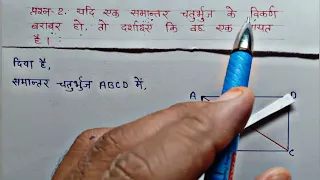 प्रश्न-2. यदि एक समान्तर चतुर्भुज के विकर्ण
बराबर हो, तो दर्शाइए कि वह एक
है।
दिया है,
समान्तर चतुर्भुज ABCD में,
A D
C